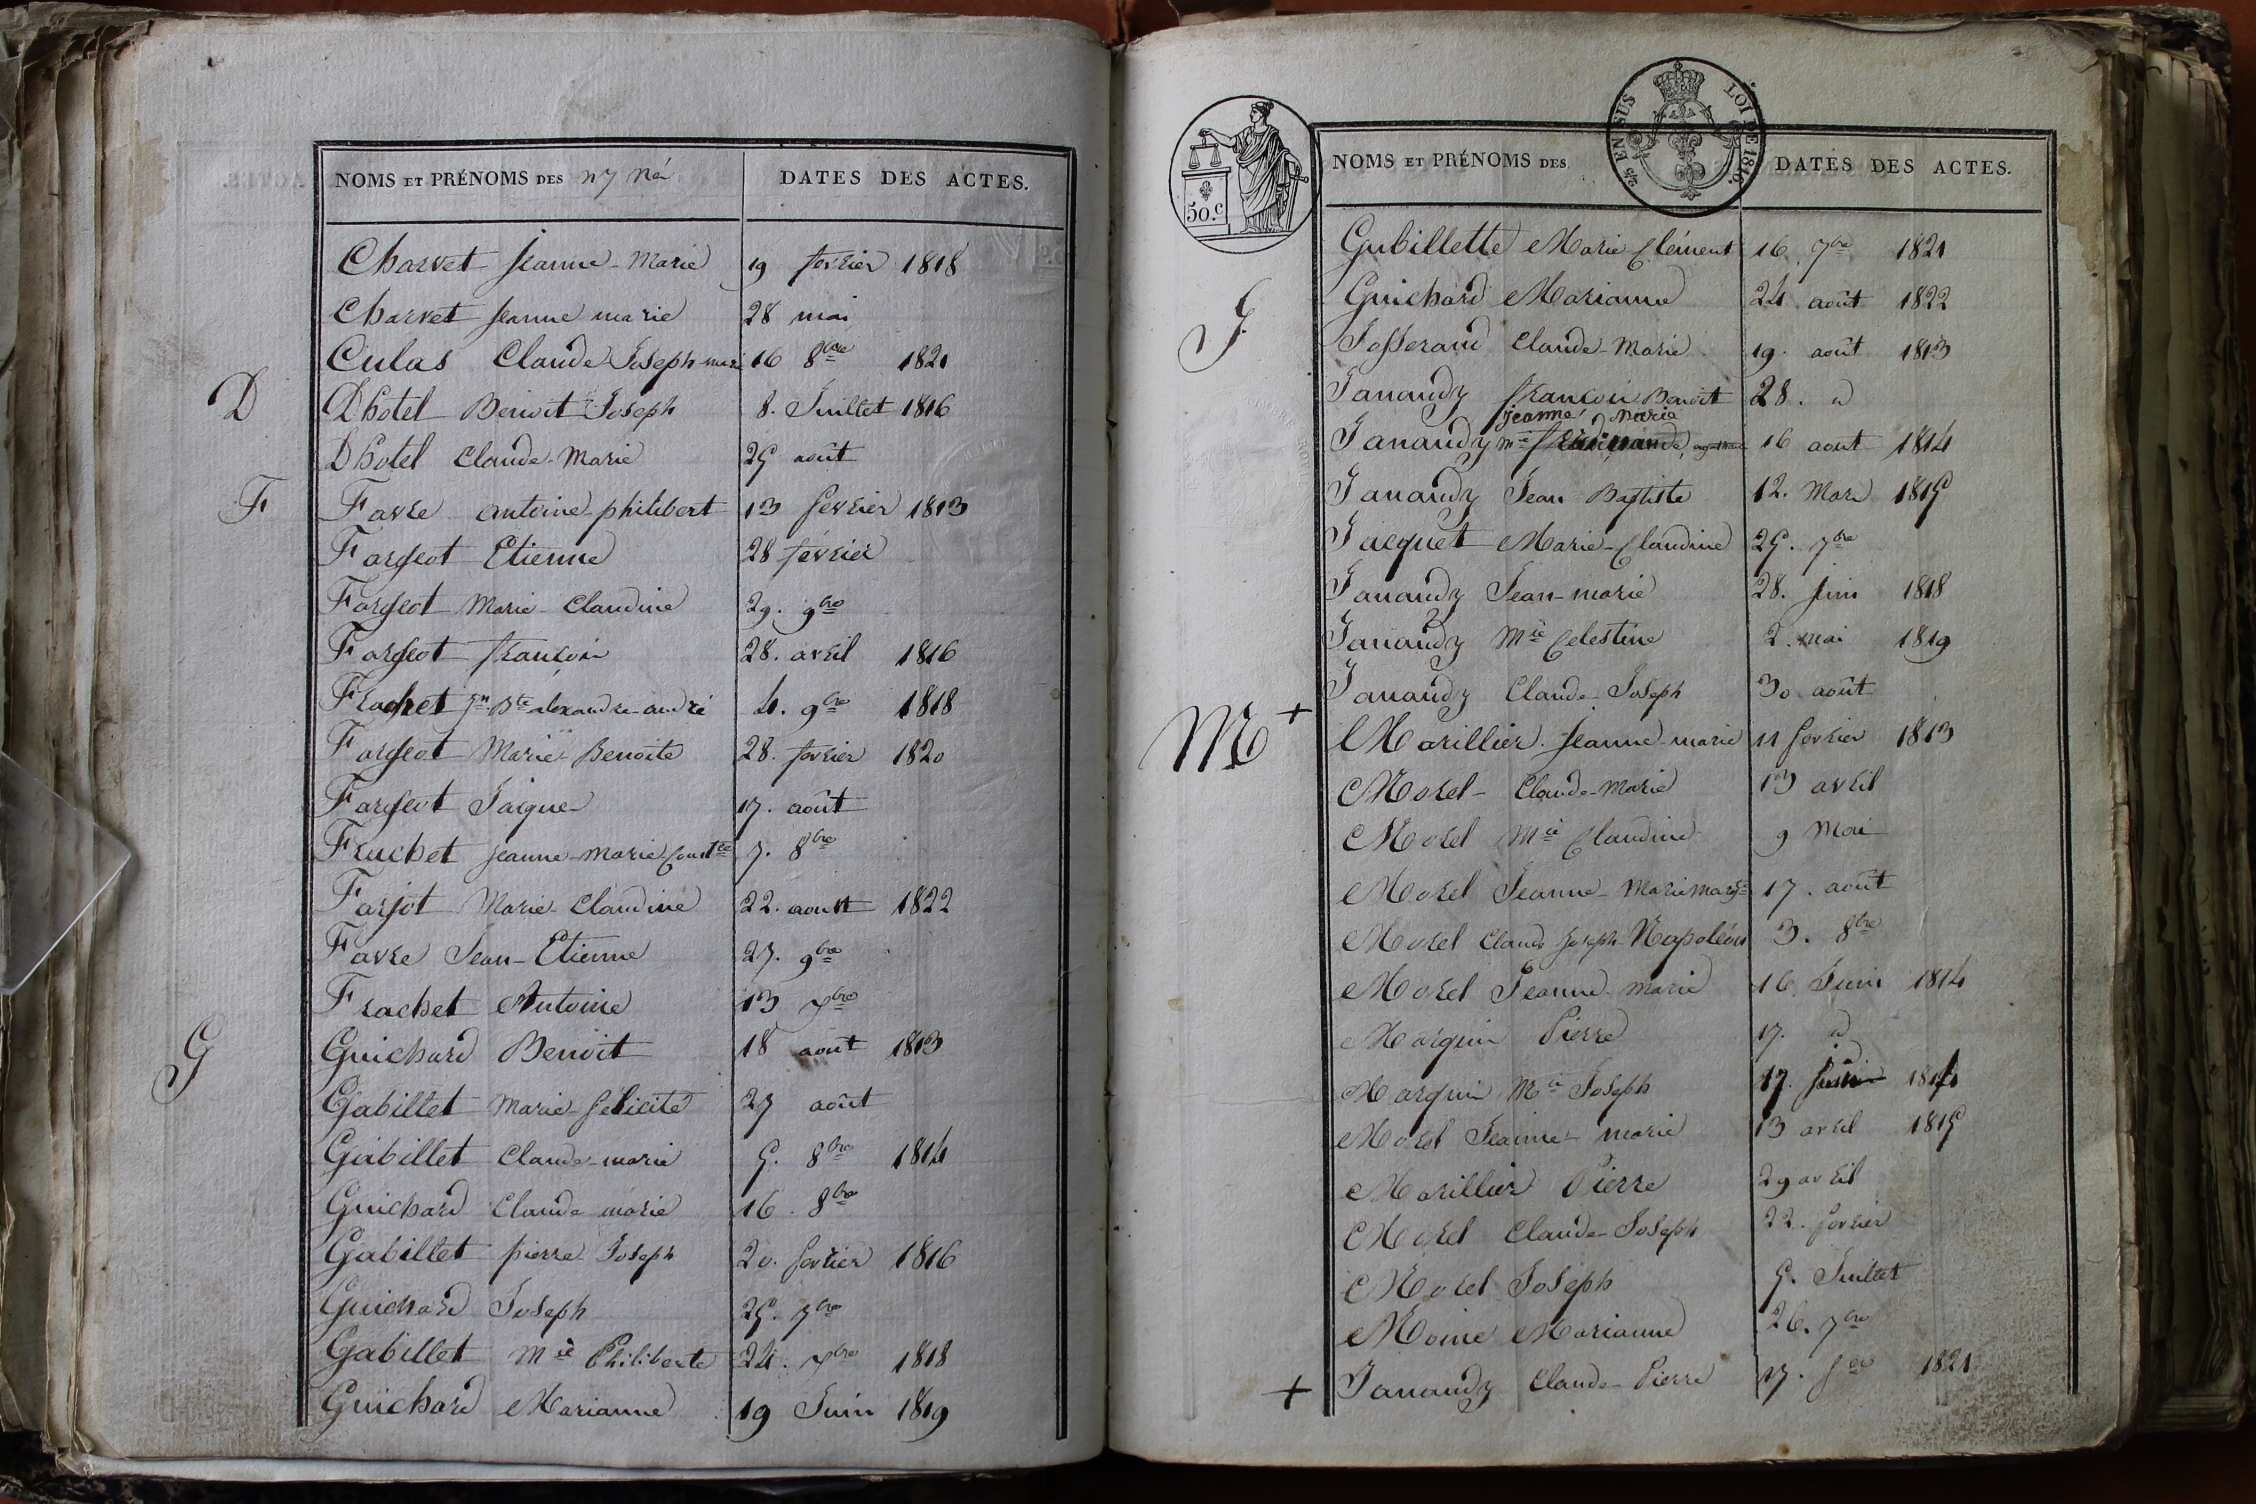 NOMS ET PRÉNOMS DES DATES DES ACTES.
Charvet Jeanne-Marie 19 fevrier 1818
Charvet Jeanne marie 28 mai
Culas Claude Joseph marie 16 8bre 1821
D
Dhotel Benoit Joseph 8. Juillet 1816
Dhotel Claude-Marie 25 août
F
Favre antoine-philibert 13 fevrier 1813
Fargeot Etienne 28 fevrier
Fargeot Marie-Claudine 29. 9bre
Fargeot françois 28. avril 1816
Frachet Jn Bte alexandre-andré 4. 9bre 1818
Fargeot Marie Benoite 28. fevrier 1820
Fargeot Jaique 17. août
Frachet Jeanne-Marie 7. 8bre
Farjot Marie-Claudine 22. aoust 1822
Favre Jean-Etienne 27. 9bre
Frachet Antoine 13 Xbre
G
Guichard Benoit 18 août 1813
Gabillet Marie felicité 27 août
Gabillet Claude-marie 5. 8bre 1814
Guichard Claude marie 16. 8bre
Gabillet pierre Joseph 20. fevrier 1816
Guichard Joseph 25. 7bre
Gabillet Mie Philiberte 24. Xbre 1818
Guichard Marianne 19 Juin 1819
50.c
25 EN SUS LOI DE 1816.
NOMS ET PRÉNOMS DES DATES DES ACTES.
Gubillette Marie Clément 16. 7bre 1821
Guichard Marianne 24 août 1822
J
Josserand Claude-Marie 19. août 1813
Janaudy françois Benoit 28. d
jeanne Marie
Janaudy mie 16 aout 1814
Janaudy Jean Baptiste 12. Mars 1815
Jacquet Marie-Claudine 25. 7bre
Janaudy Jean-marie 28. Juin 1818
Janaudy Mie Celestine 2. mai 1819
Janaudy Claude-Joseph 30 août
M +
Marillier Jeanne-marie 11 fevrier 1813
Morel Claude-Marie 13 avril
Morel Mie Claudine 9 Mai
Morel Jeanne-Marie 17. août
Morel Claude Joseph-Napoléon 3. 8bre
Morel Jeanne marie 16. Juin 1814
Marquin Pierre 17. d
Marquin Mie Joseph 17. 1814
Morel Jeanne-marie 13 avril 1815
Marillier Pierre 29 avril
Morel Claude-Joseph 22. fevrier
Morel Joseph 5. Juillet
Moine Marianne 26. 7bre
+ Janaudy Claude-Pierre 17. 1821